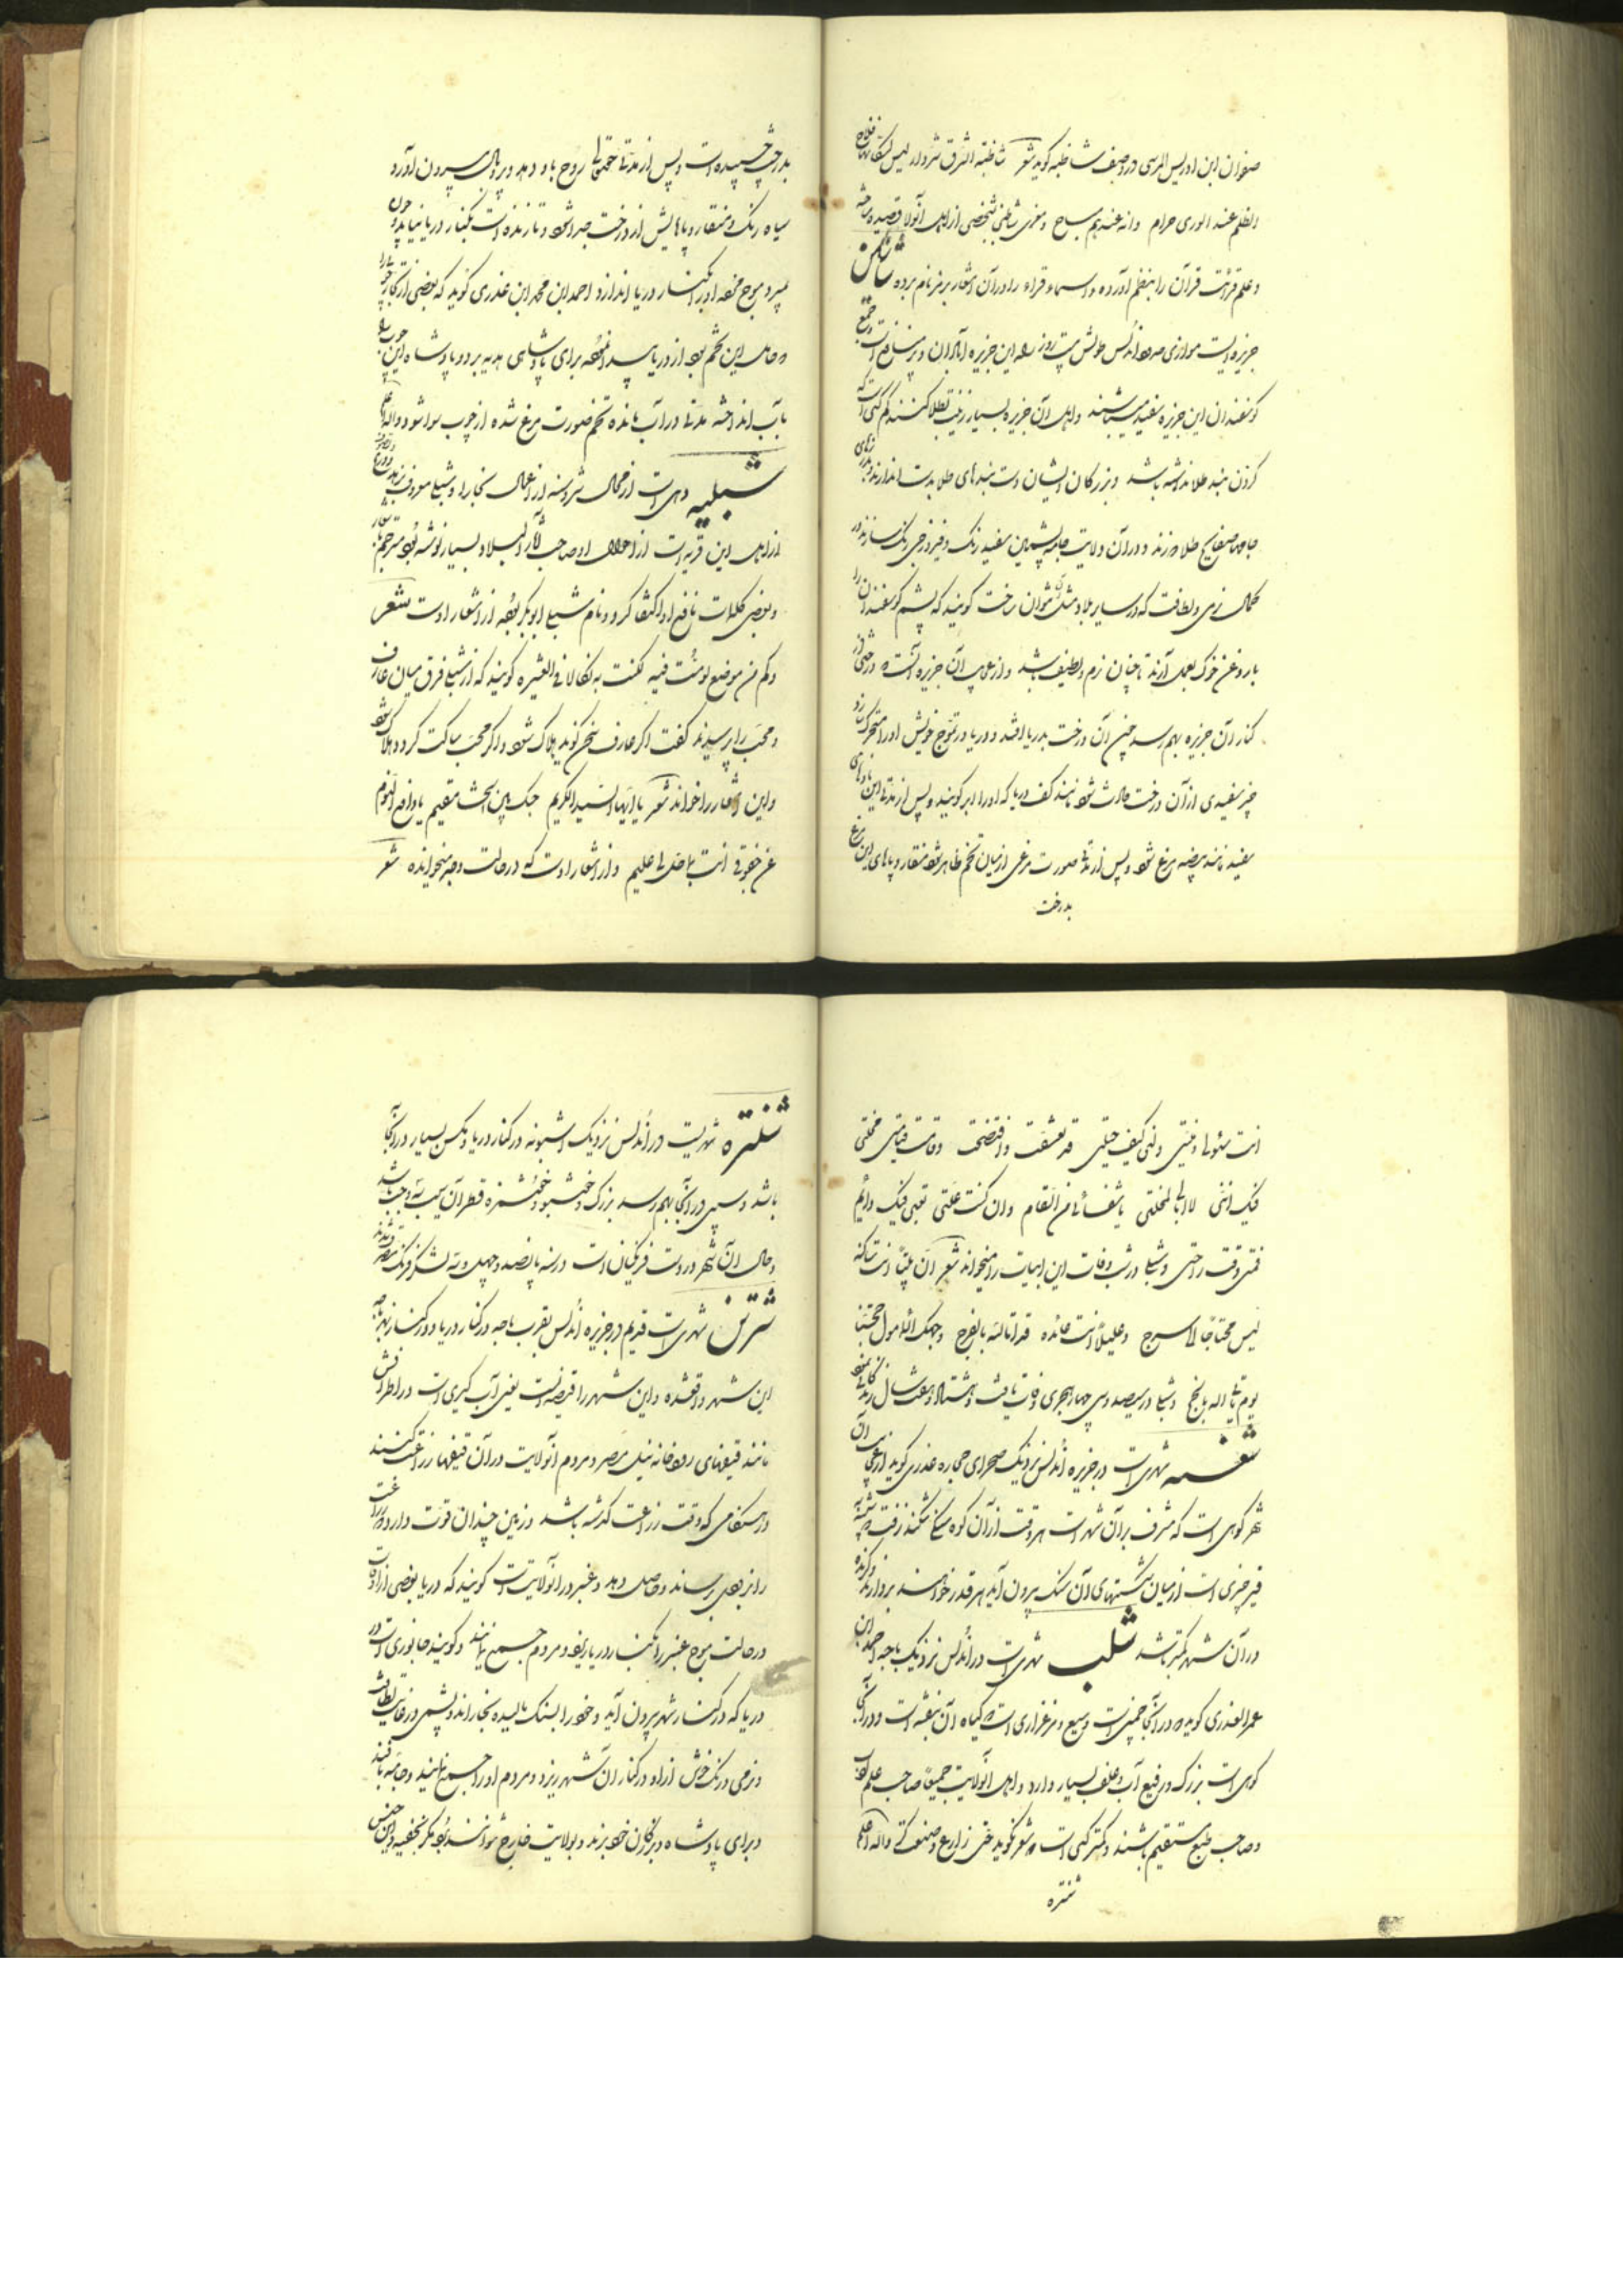 صفوان ابن ادریس المرسی در وصف شاطبه کوید شعر شاطبة الشرق شر دار لیس لسکانها فلاح
الظلم عند الوری حرام وانه عندهم مباح و مغری شاطبی شخصی از اهل آنولا قصیده ساخته
و علم قرائت قرآن را بنظم آورده و اسماء قراء را در آن اشعار برمز نام برده شاشین
جزیره ایست موازی حد اندلس طولش بیست روز راه این جزیره آبادان و پر منافع است جمیع
کوسفندان این جزیره سفید میباشند و اهل آن جزیره بسیار زینت بطلا کنند کم کسی است که
کردن بند طلا نداشته باشد و بزرکان ایشان دست بندهای طلا بدست اندازند و بر
جامها صفایح طلا دوزند و در آن ولایت جامه پشمین سفید رنک و فیروزجی رنک سازند در
کمال نرمی و لطافت که در سایر بلاد مثل آن نتوان ساخت کویند که پشم کوسفندان را
با روغن خوک بعمل آرند تا چنان نرم و لطیف باشد و از عجایب آن جزیره آنست که درختی در
کنار آن جزیره بهم رسد چون آن درخت بدریا افتد و دریا در تموج خویش او را متحرک سازد
چیز سفیدی از آن درخت حادث شود مانند کف دریا که او را ابر کویند و پس از مدتی این
سفید مانند بیضه مرغ شود و پس از مدتها صورت مرغی از میان تخم ظاهر شود منقار و پاهای این مرغ
بدرخت
بدرخت چسپیده است و پس از مدتی حقتعالی روح باو دهد و پر و بال بیرون آورد
سیاه رنک و منقار و پاهایش از درخت جدا شود و تا زنده است بکنار دریا نیاید و چون
بمیرد موج مرغ او را بکنار دریا اندازد احمد ابن محمد ابن عذری کوید که بعضی از تجار
و حامل این تخم بود از دریا بیرون آمده برای پادشاهی هدیه برد و پادشاه این چوب را
بآب انداخته مدتی در آب مانده تخم صورت مرغ شده از چوب سوا شود والله اعلم
شبلیه دهی است از محال شروسنه از اعمال بخارا و شبلی معروف
از اهل این قریه است از احوال او صاحب آثار البلاد بسیار نوشته بود مترجم
و بعضی کلمات نافع او را اکتفا کرد و نام شبلی ابوبکر بود از اشعار اوست شعر
وکم من موضع لو مت فیه لکنت به نکالا فی العشیره کویند که از شبلی فرق میان عارف
و محب را پرسیدند کفت اکر عارف سخن کوید هلاک شود و اکر محب ساکت کردد هلاک شود
و این اشعار را خواند شعر یا ایها السید الکریم حبک بین الحشا مقیم یا رافع النوم
عن جفونی انت بما حل بی علیم و از اشعار اوست که در حالت وجد میخوانده شعر
انت سؤلی و منیتی دلنی کیف حیلتی قد تعشقت و افتضحت و قامت قیامتی محنتی
فیک اننی لا ابالی بمحنتی یا شفائی من السقام وان کنت علتی تعبی فیک دائم
فمتی وقت راحتی و شبلی در شب وفات این ابیات را میخواند شعر ان بیتا انت ساکنه
لیس محتاجا الی سرج و علیلا انت عائده قد اتاه الله بالفرج وجهک المامول حجتنا
یوم یأتی الناس بالحجج و شبلی در سیصد و سی چهار هجری وفات یافت و هشتاد و هفت سال زندکانی
شغسه شهری است در جزیره اندلس نزدیک صحرای حجاره عذری کوید از عجایب آن
شهر کوهی است که مشرف بر آن شهر است هر وقت از آن کوه سنکی شکنند زفت
قیر چیزی است از میان شکستهای آن سنک بیرون آید هر قدر خواهند بردارند
در آن شهر کمتر باشد شلب شهری است در اندلس نزدیک باجه احمد ابن
عمر العذری کوید که در آنجا چمنی است وسیع و مرغزاری است که کیاه آن بنفشه است و در آنجا
کوهی است بزرک و رفیع آب و علف بسیار دارد و اهل آنولایت جمیعا صاحب علم اند
و صاحب طبع مستقیم باشند و کمتر کسی است که شعر نکوید حتی زارع و صنعت کر والله اعلم
شنتره
شنتره شهریست در اندلس نزدیک اشبونه در کنار دریا و مکس بسیار در آنجا
باشد و سیبی در آنجا بهم رسد بزرک و خوشبو و خوشمزه قطر آن سیب سه وجب باشد
و حال آن شهر در دست فرنکیان است در سنه پانصد و چهل و سه لشکر فرنک متصرف شدند
شنترین شهری است قدیم در جزیره اندلس بقرب باجه در کنار دریا و در کنار نهر باجه
این شهر واقعشده و این شهر را قیضه ایست یعنی آب کیری است در اطرافش
مانند قیضهای رودخانه نیل مصر و مردم آنولایت در آن قیضها زراعت کنند
در هنکامی که وقت زراعت کذشته باشد و زمین چندان قوت دارد که زراعت
را بزودی رساند و حاصل دهد و عنبر در آنولایت است کویند که دریا بعضی از اوقات
در حالت موج عنبر را بکنار دریا ریزد و مردم جمع نمایند و کویند جانوری است در
دریا که در کنار شهر بیرون آید و خود را بسنک مالیده بخاراند پشمی در غایت لطافت
و نرمی و رنک خوش از او در کنار آن شهر ریزد و مردم او را جمع نمایند و جامه بافند
و برای پادشاه و بزرکان خود برند و بولایت خارج نتوانند برد مکر بخفیه و این جنس